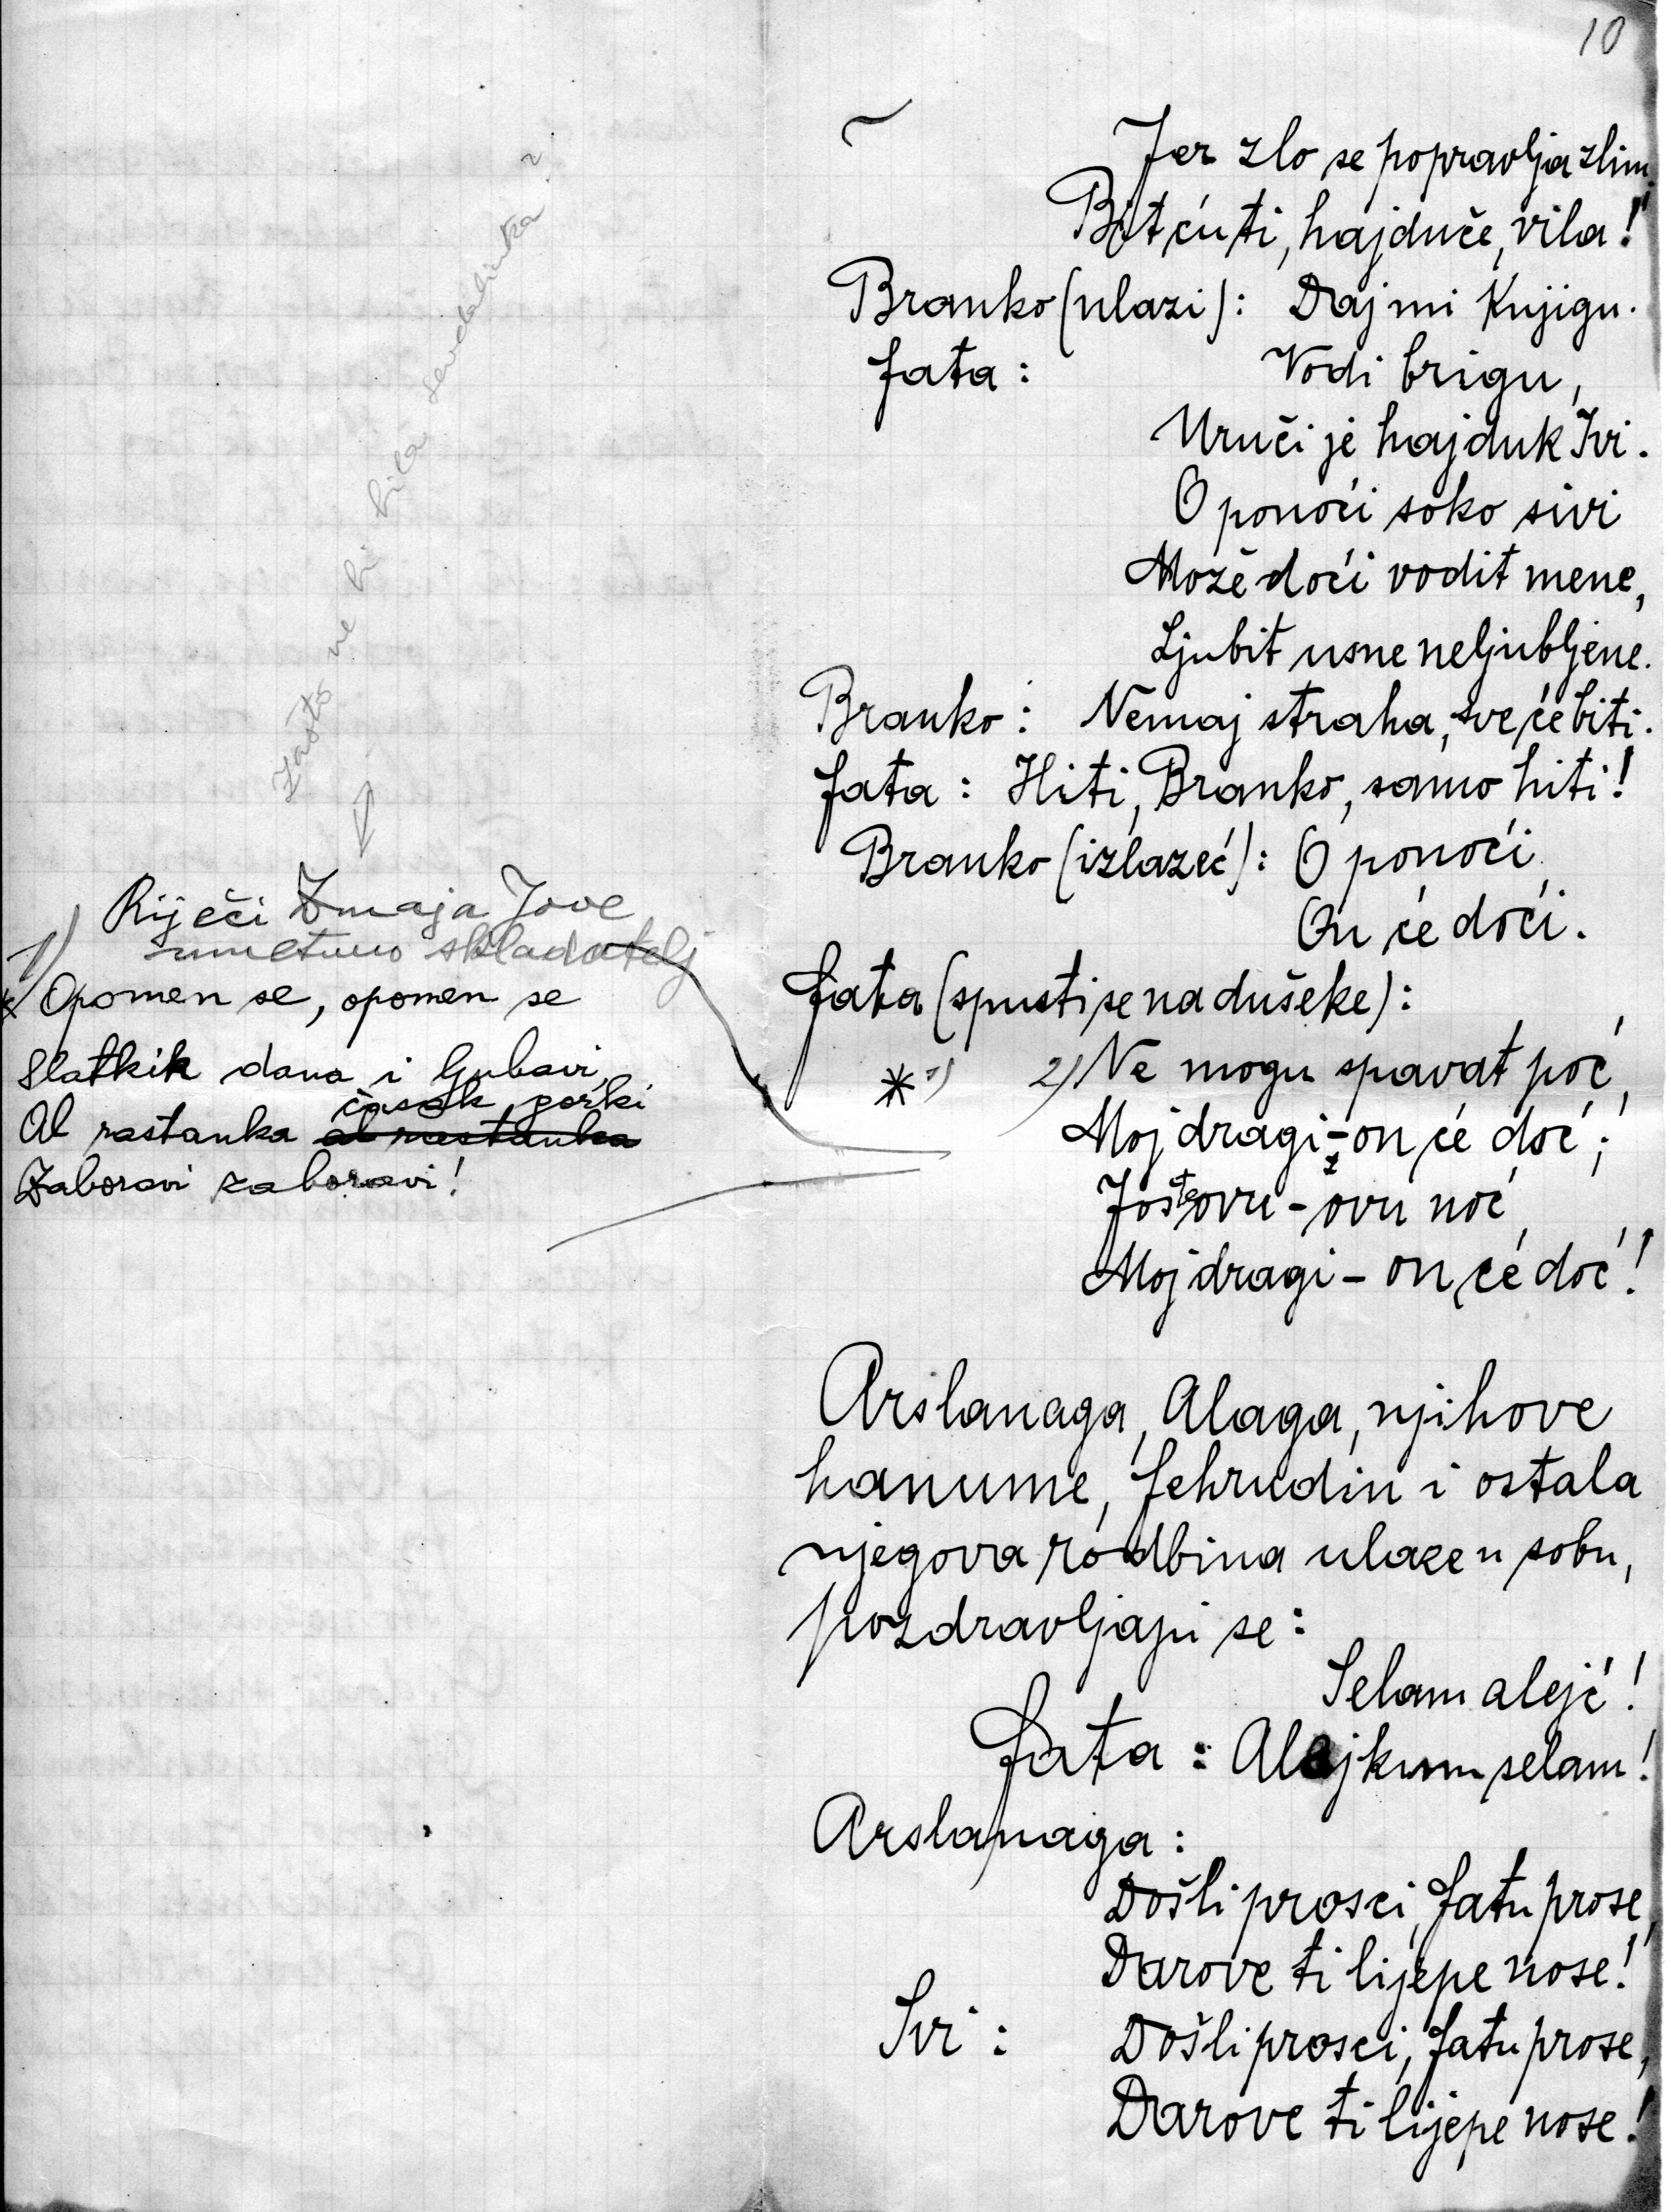 10
Jer zlo se popravlja zlim,
Bit ću ti, hajduče, vila!
Branko (ulazi): Daj mi knjigu.
Fata: Vodi brigu,
Uruči je hajduk Ivi.
O ponoći soko sivi
Može doći vodit mene,
Ljubit usne neljubljene.
Branko: Nemaj straha, sve će biti.
Fata: Hiti, Branko, samo hiti!
Branko (izlazeć): O ponoći
On će doći.
Fata (spusti se na dušeke):
* 1) 2) Ne mogu spavat poć,
Moj dragi - on će doć;
Jošte ovu - ovu noć
Moj dragi - on će doć!
Arslanaga, Alaga, njihove
hanume, Fehrudin i ostala
njegova rodbina ulaze u sobu,
pozdravljaju se:
Selam alejć!
Fata: Alejkum selam!
Arslanaga:
Došli prosci, Fatu prose,
Darove ti lijepe nose!
Svi: Došli prosci, Fatu prose,
Darove ti lijepe nose!
Zašto ne bi bila sevdalinka?
Riječi Zmaja Jove
umetnuo skladatelj
1)
* Opomen se, opomen se
Slatkih dana i ljubavi,
časak gorki
Al rastanka al rastanka
Zaboravi zaboravi!